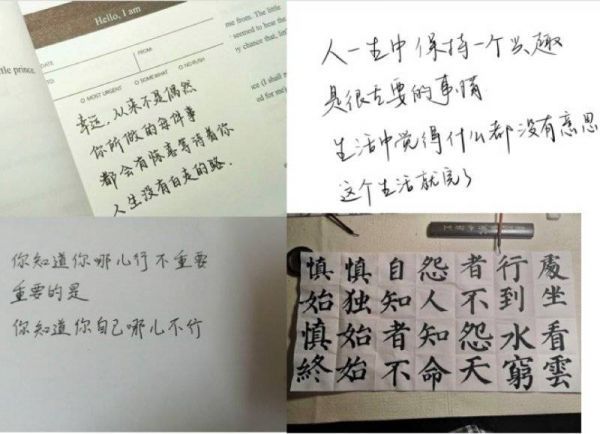 Hello, I am
DATE
FROM:
MOST URGENT SOMEWHAT NO RUSH
幸运,从来不是偶然
你所做的每件事
都会有惊喜等待着你
人生没有白走的路.
tle prince.
me from. The little
seemed to hear the
人一生中保持一个兴趣
是很主要的事情
生活中觉得什么都没有意思
这个生活就完了
你知道你哪儿行不重要
重要的是
你知道你自己哪儿不行
慎始慎終
慎独始始
自知者不
怨人知命
者不怨天
行到水窮
處坐看雲